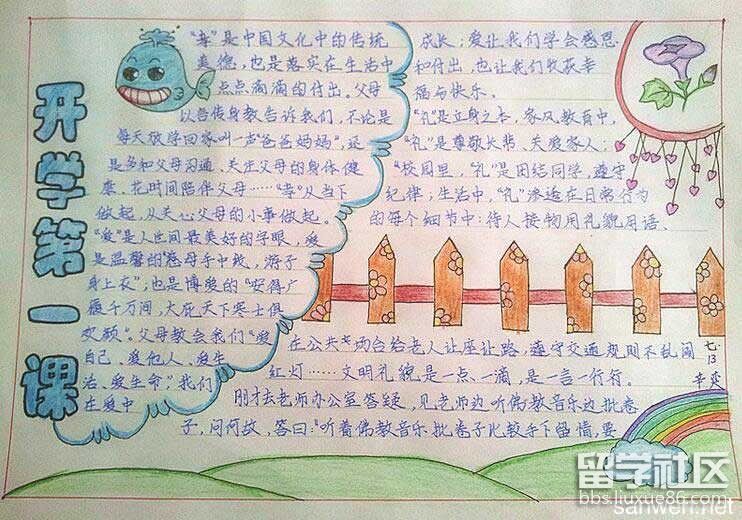 开学第一课
“孝”是中国文化中的传统
美德，也是落实在生活中
点点滴滴的付出。父母
以言传身教告诉我们，不论是
每天放学回家叫一声“爸爸妈妈”，还
是多和父母沟通、关注父母的身体健
康、花时间陪伴父母……“孝”从当下
做起，从关心父母的小事做起。
“爱”是人世间最美好的字眼，爱
是温馨的“慈母手中线，游子
身上衣”，也是博爱的“安得广
厦千万间，大庇天下寒士俱
欢颜”。父母教会我们“爱
自己、爱他人、爱生
活、爱生命”，我们
在爱中
成长；爱让我们学会感恩
和付出，也让我们收获幸
福与快乐。
“礼”是立身之本。家风、教育中，
“礼”是尊敬长辈、关爱家人；
“校园里，“礼”是团结同学，遵守
纪律；生活中，“礼”渗透在日常行为
的每个细节中：待人接物用礼貌用语、
在公共场合给老人让座让路，遵守交通规则不乱闯
红灯……文明礼貌是一点一滴，是一言一行。
刚才去老师办公室答疑，见老师边听佛教音乐边批卷
子，问何故，答曰：“听着佛教音乐批卷子比较手下留情，要
七.13
留学社区
bbs.liuxue86.com
sanwen.net